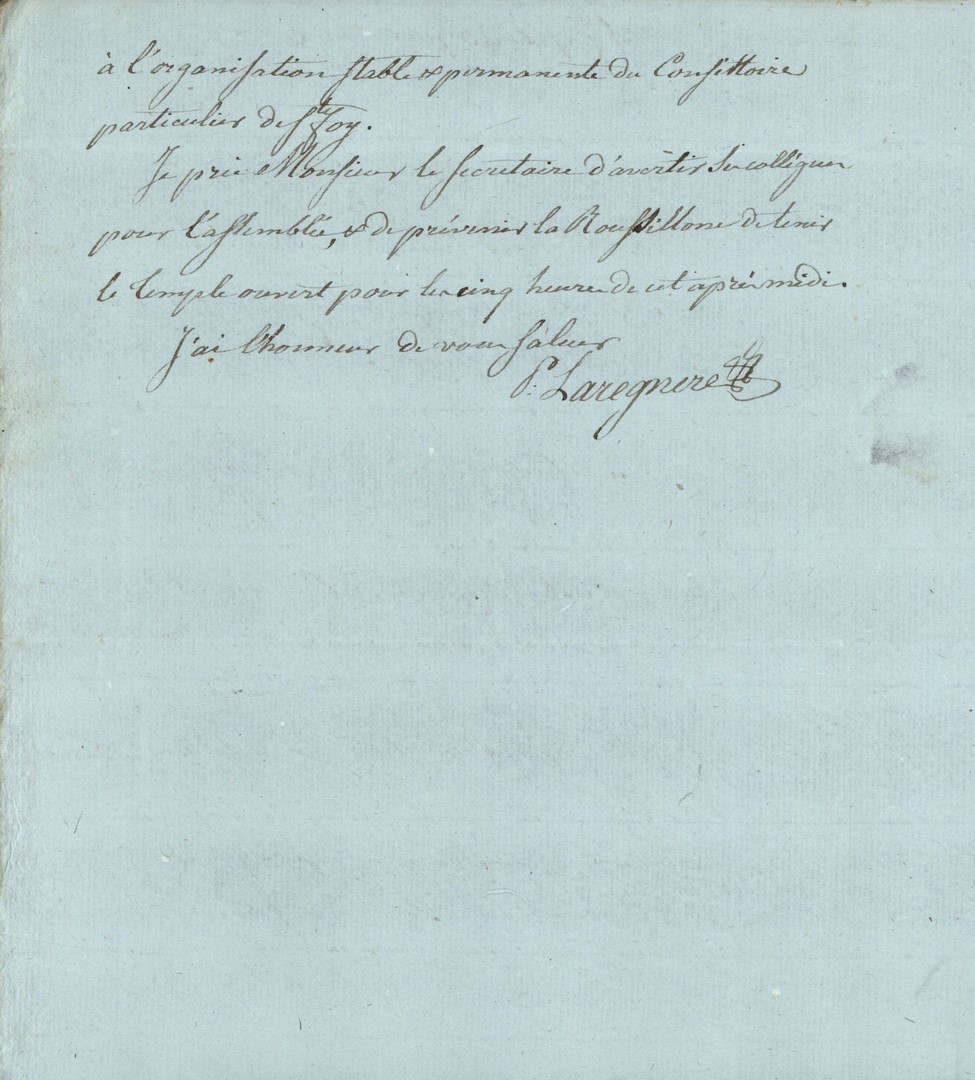 à l'organisation stable & permanente du Consistoire
particulier de Ste Foy.
Je prie Monsieur le secretaire d'avertir ses collégues
pour l'assemblée, & de prévenir la Roussillone de tenir
le temple ouvert pour les cinq heures de cet après midi.
J'ai l'honneur de vous saluer
P. Laregnere